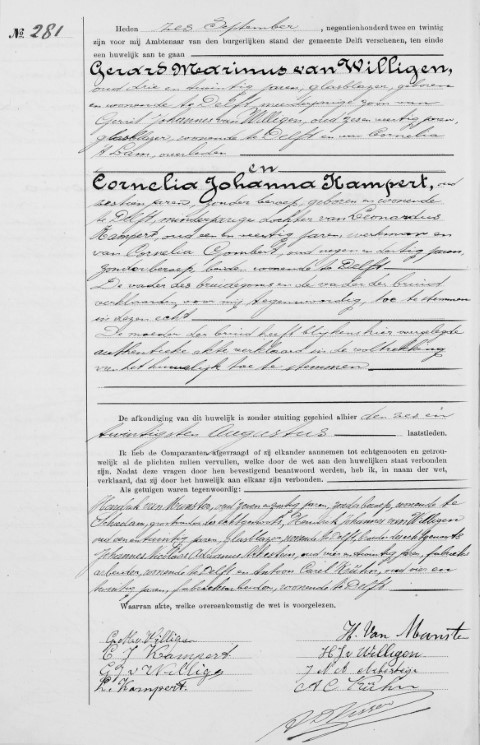 № 281
Heden zes September, negentienhonderd twee en twintig
zijn voor mij Ambtenaar van den burgerlijken stand der gemeente Delft verschenen, ten einde
een huwelijk aan te gaan
Gerard Marinus van Willigen,
oud drie en twintig jaren, glasblazer, geboren
en wonende te Delft, meerderjarige zoon van
Gerrit Johannes van Willigen, oud zes en veertig jaren,
glasblazer, wonende te Delft en van Cornelia
overleden
en
Cornelia Johanna Kampert, oud
zestien jaren, zonder beroep, geboren en wonende
te Delft, minderjarige dochter van Leonardus
Kampert, oud een en veertig jaren, werkman en
van Cornelia oud negen en dertig jaren,
zonder beroep, beiden wonende te Delft
De vader des bruidegoms en de vader der bruid
verklaarden voor mij tegenwoordig, toe te stemmen
in dezen echt
De moeder der bruid heeft blijkens hier overgelegde
authentieke akte verklaard in de voltrekking
van het huwelijk toe te stemmen
De afkondiging van dit huwelijk is zonder stuiting geschied alhier den zes en
twintigsten Augustus laatstleden.
Ik heb de Comparanten afgevraagd of zij elkander aannemen tot echtgenooten en getrouw-
welijk al de plichten zullen vervullen, welke door de wet aan den huwelijken staat verbonden
zijn. Nadat deze vragen door hen bevestigend beantwoord werden, heb ik, in naam der wet,
verklaard, dat zij door het huwelijk aan elkaar zijn verbonden.
Als getuigen waren tegenwoordig:
Hendrik van Munster, oud zeven en jaren, zonder beroep, wonende te
Schiedam, grootvader des echtgenoots, Hendrik Johannes van Willigen
oud een en twintig jaren, glasblazer, wonende te Delft, broeder des echtgenoots
Johannes Adrianus oud vier en twintig jaren, fabrieks
arbeider, wonende te Delft en Antoon Carel Kühn, oud vier en
twintig jaren, fabrieksarbeider, wonende te Delft.
Waarvan akte, welke overeenkomstig de wet is voorgelezen.
G. M. v. Willigen
H. Van Munster
C J Kampert
H J v Willigen
G J v Willige
J N A
L. Kampert
A C Kühn